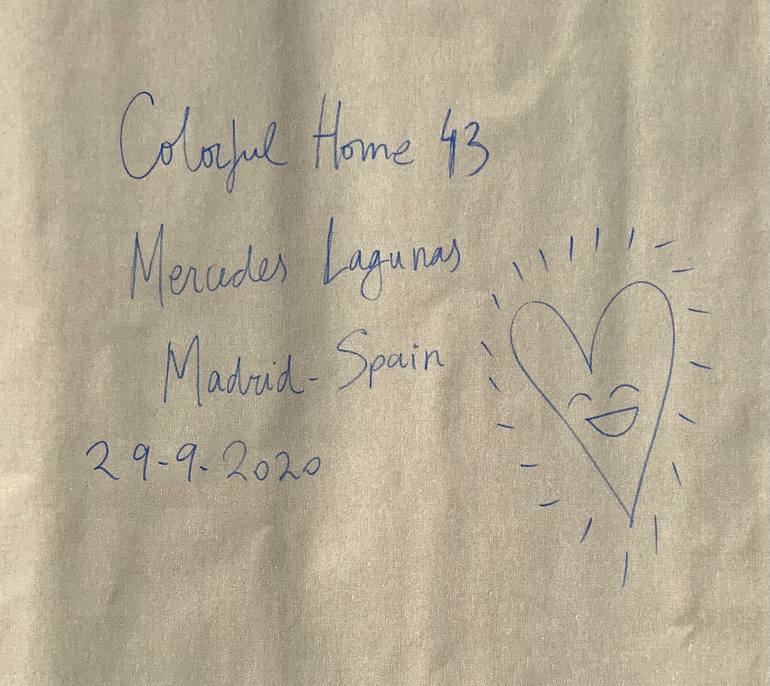 Colorful Home 43
Mercedes Lagunas
Madrid-Spain
29-9-2020